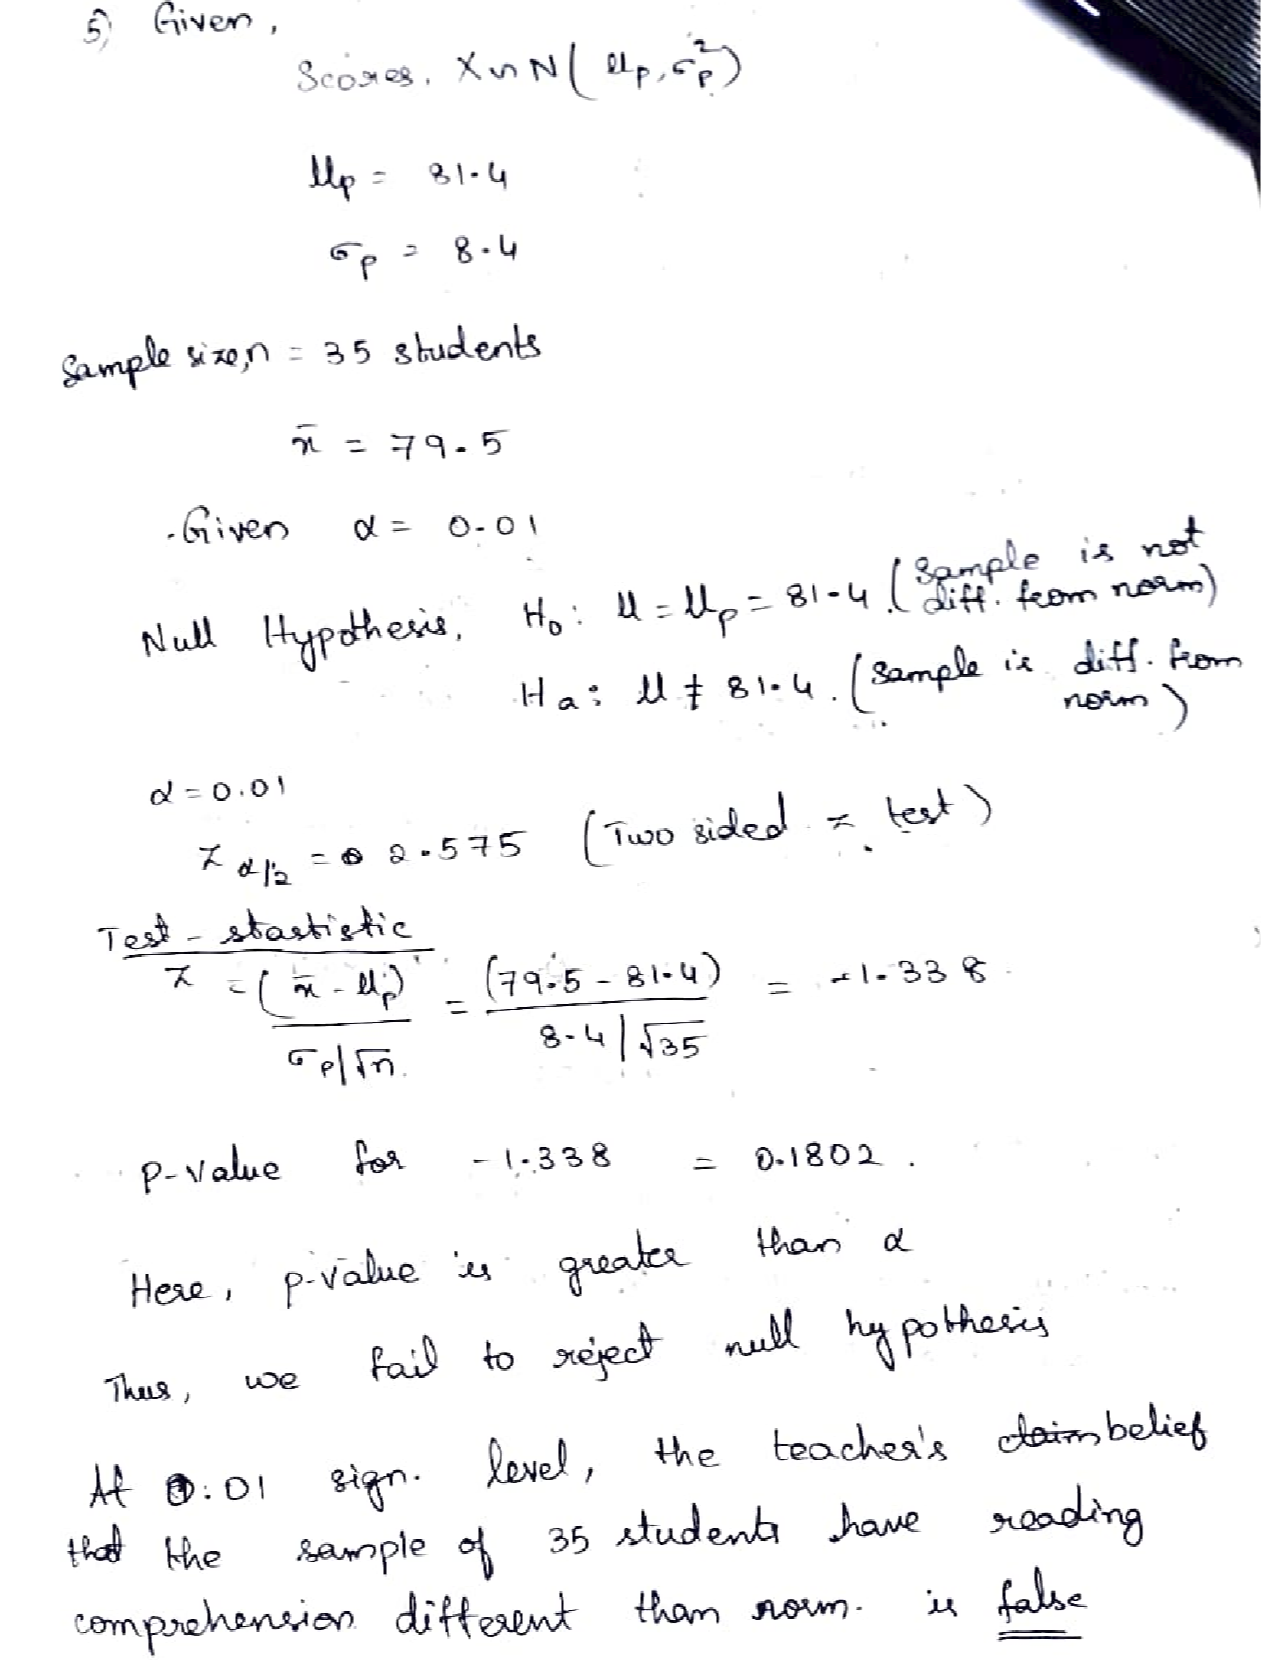 5) Given,
Scores, X ~ N( μp, σp²)
μp = 81.4
σp = 8.4
Sample size, n = 35 students
x̄ = 79.5
Given α = 0.01
Null Hypothesis, H₀: μ = μp = 81.4. (Sample is not diff. from norm)
Ha: μ ≠ 81.4. (Sample is diff. from norm)
α = 0.01
z α/2 = 2.575 (Two sided z test)
Test - stastistic
z = (x̄ - μp) / σp/√n = (79.5 - 81.4) / 8.4/√35 = -1.338
P-value for -1.338 = 0.1802.
Here, p-value is greater than α
Thus, we fail to reject null hypothesis
At 0.01 sign. level, the teacher's claim belief
that the sample of 35 students have reading
comprehension different than norm. is false